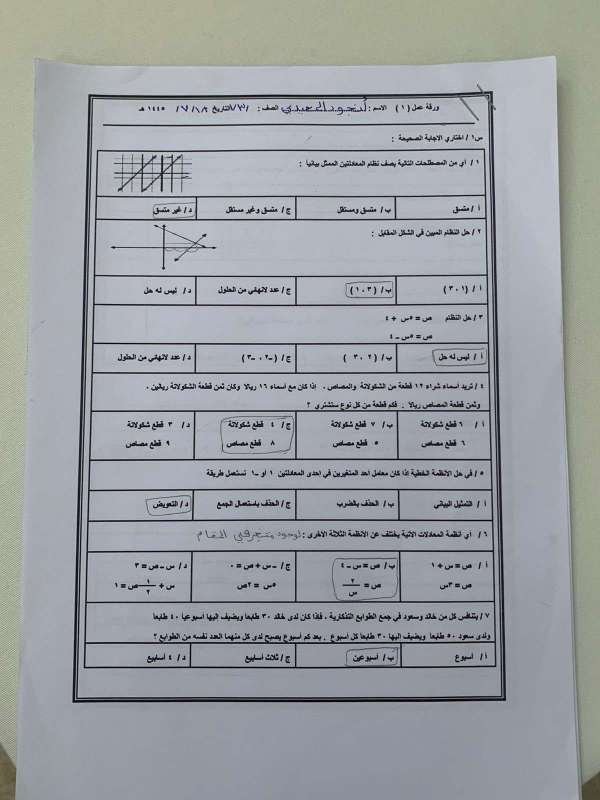 ورقة عمل ( ١ ) الاسم : الصف : التاريخ ١٤٤٥ هـ
س١ / اختاري الاجابة الصحيحة :
١ / أي من المصطلحات التالية يصف نظام المعادلتين الممثل بيانياً :
أ / متسق ب / متسق ومستقل ج / متسق وغير مستقل د / غير متسق
٢ / حل النظام المبين في الشكل المقابل :
أ / ( ٣ ، ١ ) ب / ( ١ ، ٣ ) ج / عدد لانهائي من الحلول د / ليس له حل
٣ / حل النظام ص = ٥س + ٤
ص = ٥س – ٤
أ / ليس له حل ب / ( ٢ ، ٣ ) ج / ( –٢ ، –٣ ) د / عدد لانهائي من الحلول
٤ / تريد أسماء شراء ١٢ قطعة من الشكولاتة والمصاص . اذا كان مع أسماء ١٦ ريالا وكان ثمن قطعة الشكولاتة ريالين .
وثمن قطعة المصاص ريالاً . فكم قطعة من كل نوع ستشتري ؟
أ / ٦ قطع شكولاتة ب / ٧ قطع شكولاتة ج / ٤ قطع شكولاتة د / ٣ قطع شكولاتة
٦ قطع مصاص ٥ قطع مصاص ٨ قطع مصاص ٩ قطع مصاص
٥ / في حل الأنظمة الخطية إذا كان معامل احد المتغيرين في إحدى المعادلتين ١ او –١ نستعمل طريقة
أ / التمثيل البياني ب / الحذف بالضرب ج / الحذف باستعمال الجمع د / التعويض
٦ / أي أنظمة المعادلات الآتية يختلف عن الأنظمة الثلاثة الأخرى : لوجود متغير في المقام
أ / ص = س + ١ ب / ص = س – ٤ ج / – س + ص = ٠ د / س – ص = ٣
ص = ٣س ص = ٢/س ٥س = ٢ص س + ١/٢ ص = ١
٧ / يتنافس كل من خالد وسعود في جمع الطوابع التذكارية ، فإذا كان لدى خالد ٣٠ طابعاً ويضيف إليها أسبوعياً ٤٠ طابعاً
ولدى سعود ٥٠ طابعاً ويضيف إليها ٣٠ طابعاً كل أسبوع . بعد كم أسبوع يصبح لدى كل منهما العدد نفسه من الطوابع ؟
أ / أسبوع ب / أسبوعين ج / ثلاث أسابيع د / ٤ أسابيع